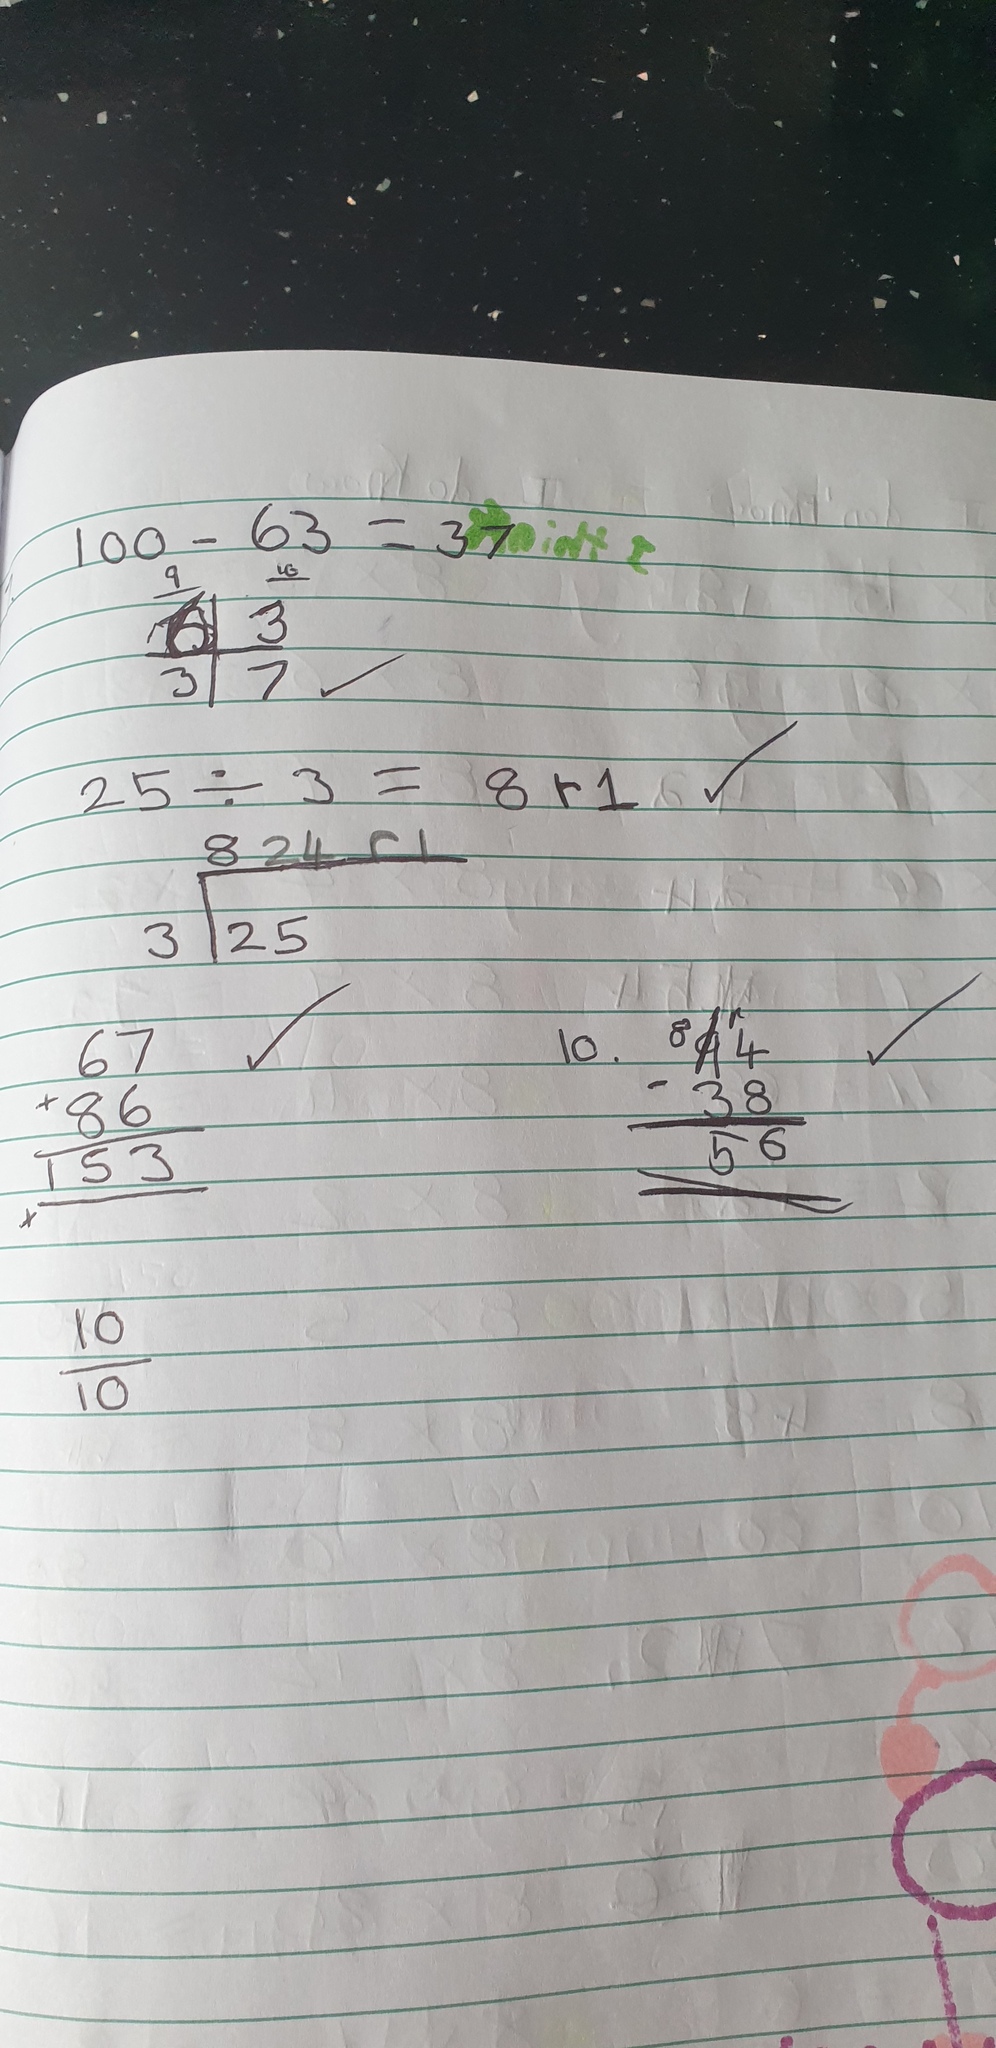 100 - 63 = 37
9 10
6 3
3 7 ✓
25 ÷ 3 = 8 r 1 ✓
8 24 r 1
3 25
67 ✓
+ 86
153
+
10. 8 9 1 4 ✓
- 38
56
10
10